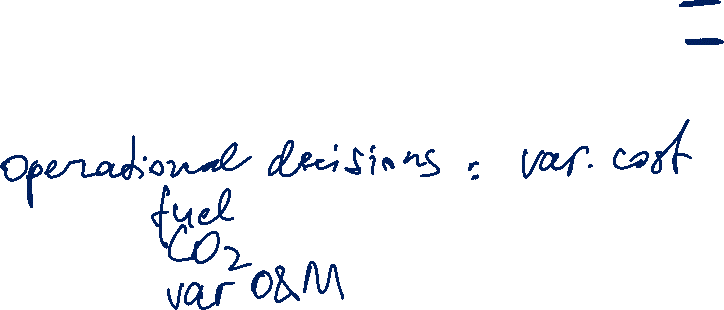 =
operational decisions : var. cost
fuel
CO2
var O&M